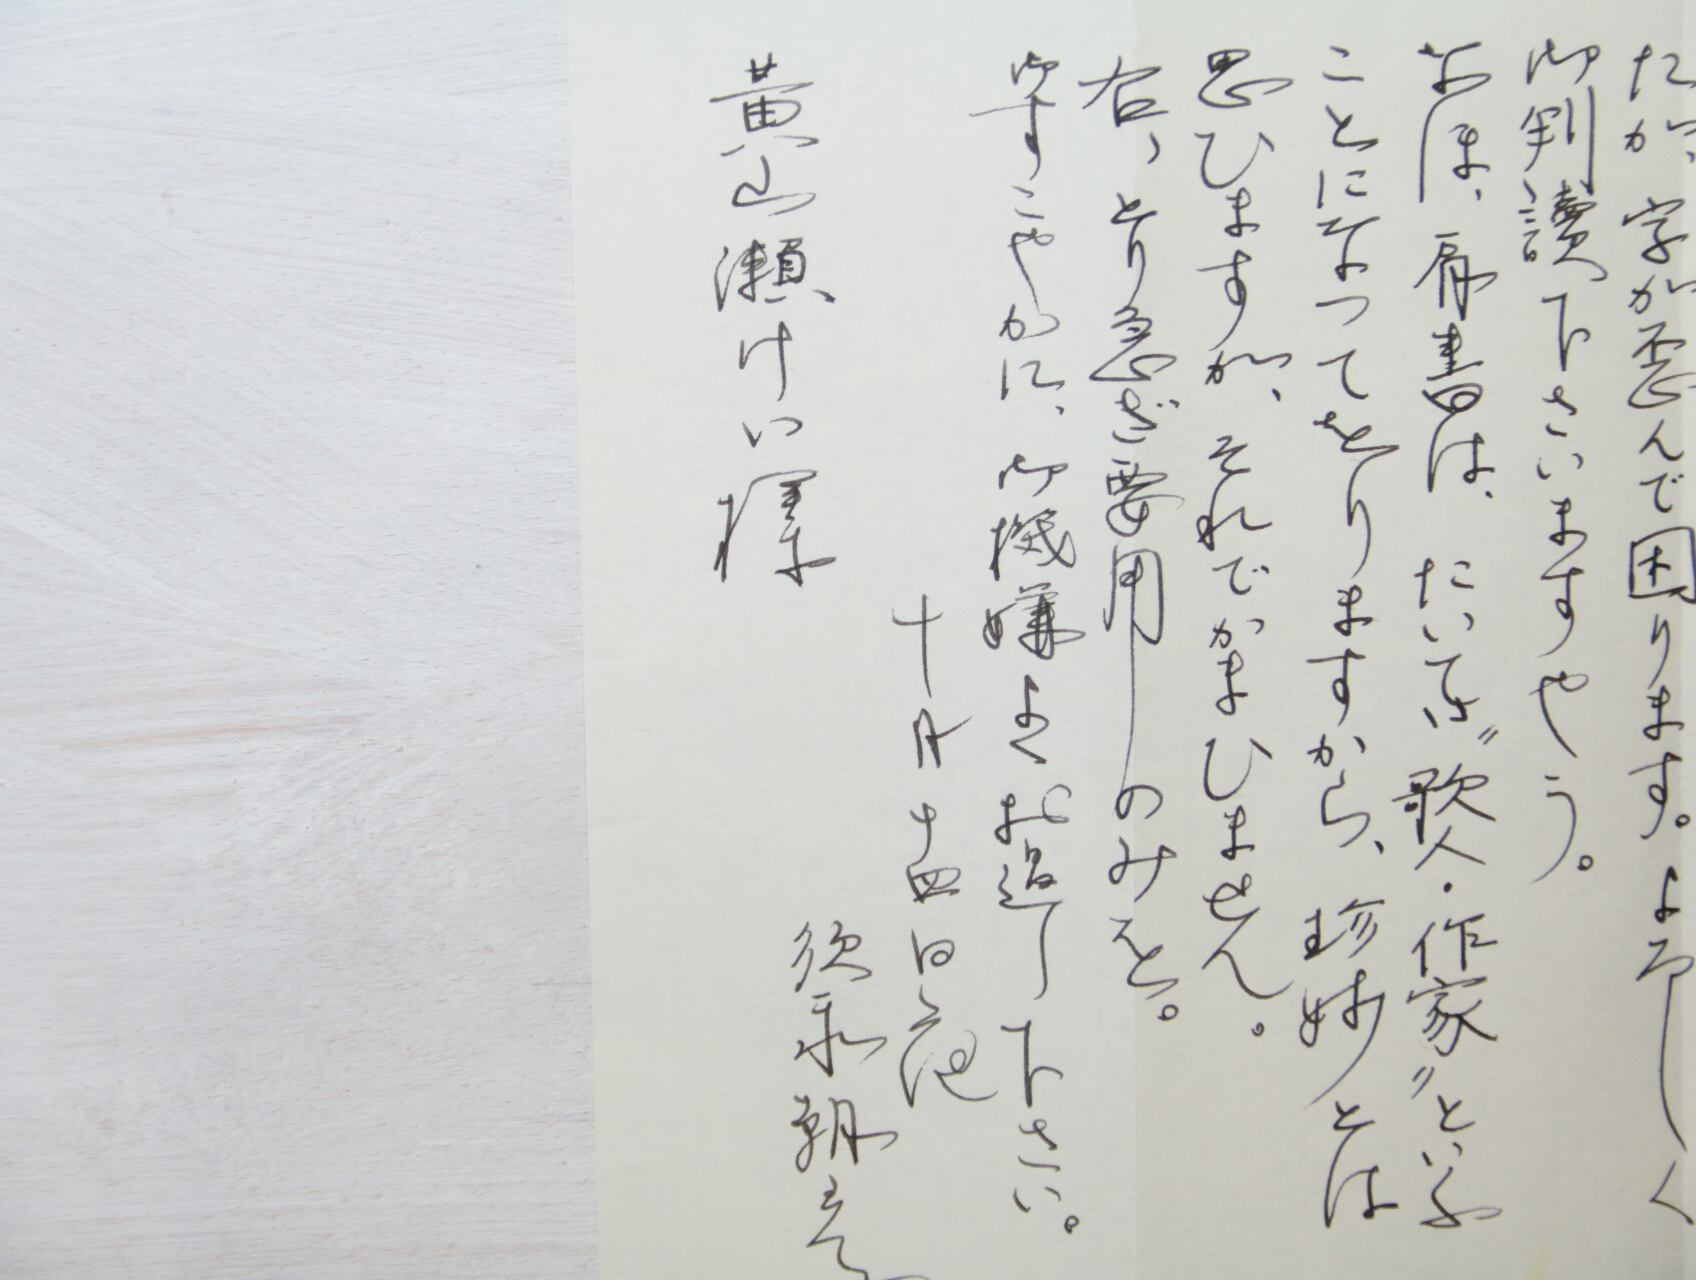 たが、字が歪んで困ります。よろしく
御判讀下さいますやう。
なほ、肩書は、たいてい〝歌人・作家〟といふ
ことになつてをりますから、珍妙とは
思ひますが、それでかまひません。
右、とり急ぎ要用のみを。
御すこやかに、御機嫌よくお過し下さい。
十月十四日夜
須永朝彦
黄山瀬けい樣